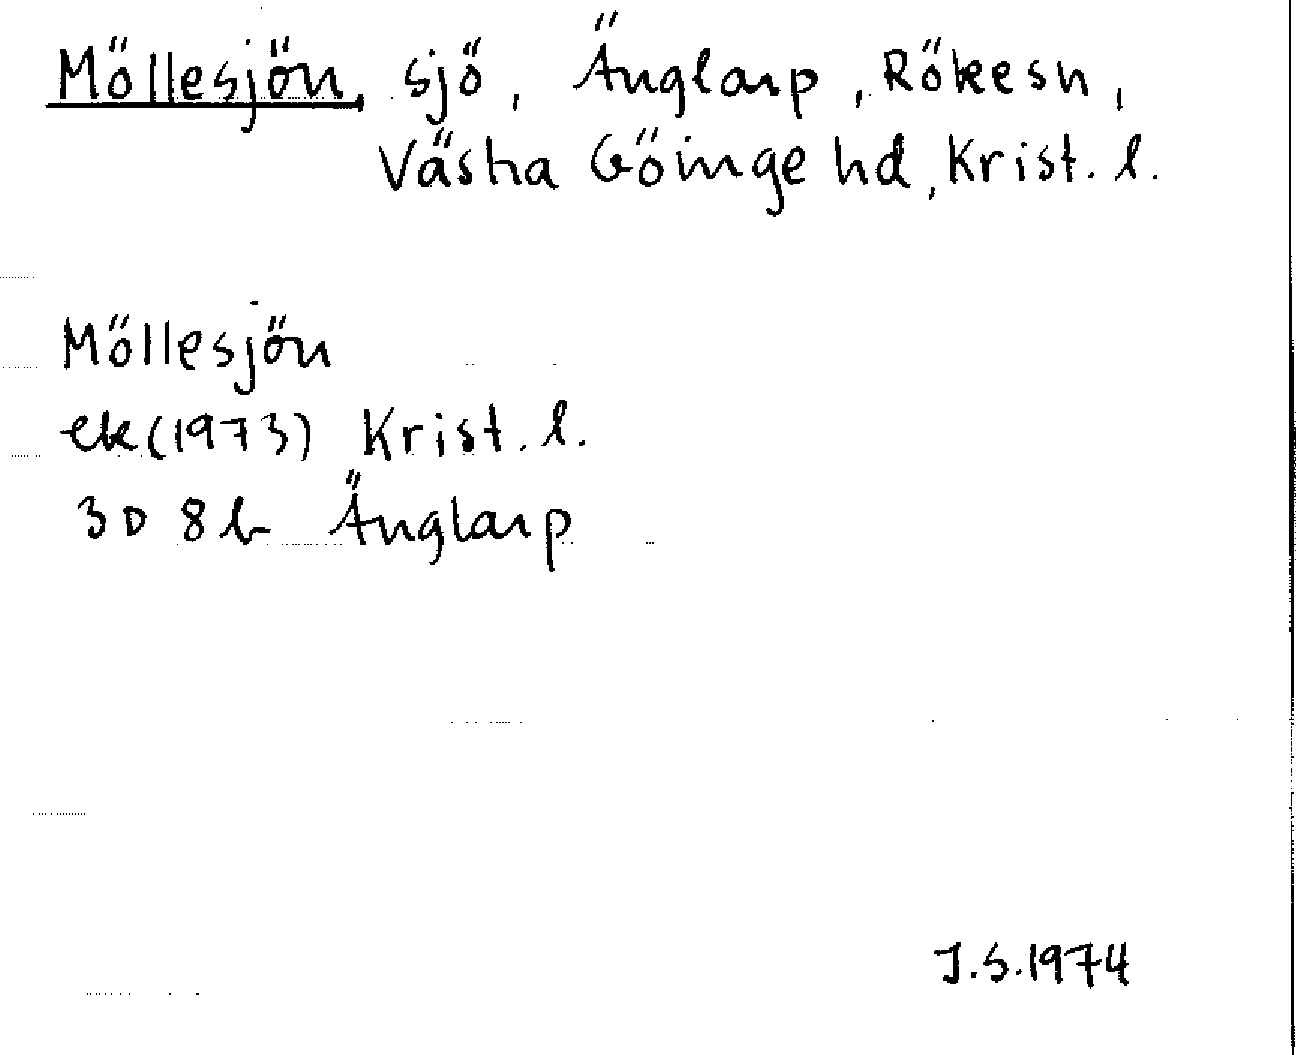 Möllesjön, sjö, Änglarp, Röke sn,
Västra Göinge hd, Krist. l.
Möllesjön
ek (1973) Krist. l.
3D 8b Änglarp
J.S. 1974